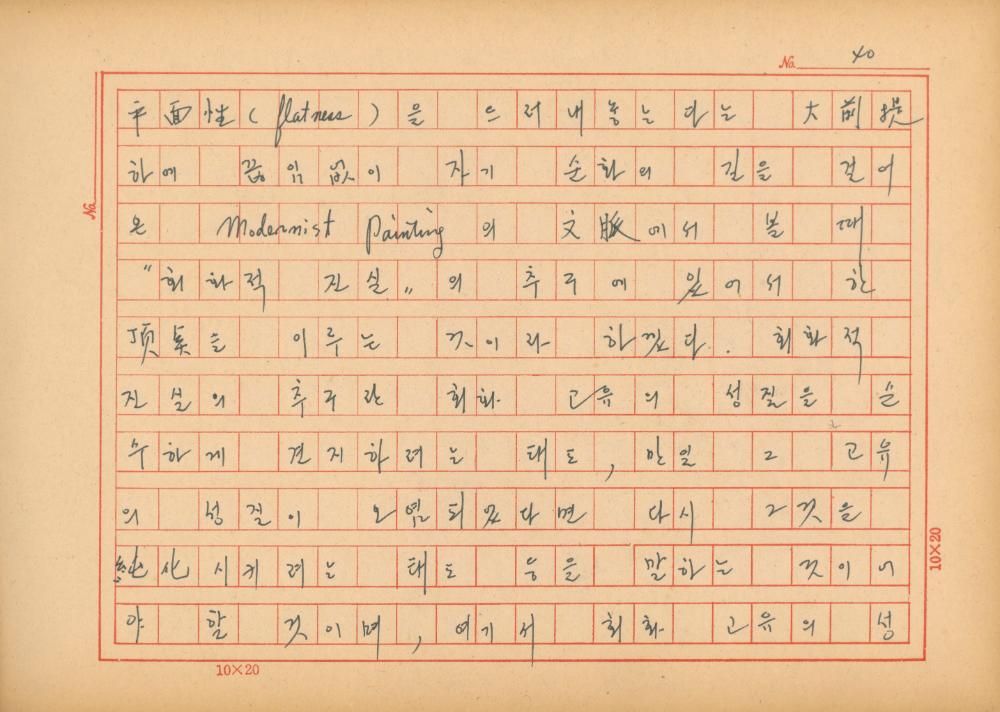 No. 40
平面性(flatness)을 으러내놓는다는 大前提
하에 끊임없이 자기 순화의 길을 걸어
온 Modernist Painting의 文脈에서 볼 때
"회화적 진실"의 추구에 있어서 한
頂点을 이루는 것이라 하겠다. 회화적
진실의 추구란 회화 고유의 성질을 순
수하게 견지하려는 태도, 만일 그 고유
의 성질이 오염되었다면 다시 그것을
純化시키려는 태도 등을 말하는 것이니
야 할 것이며, 여기서 회화 고유의 성
No.
10×20
10×20